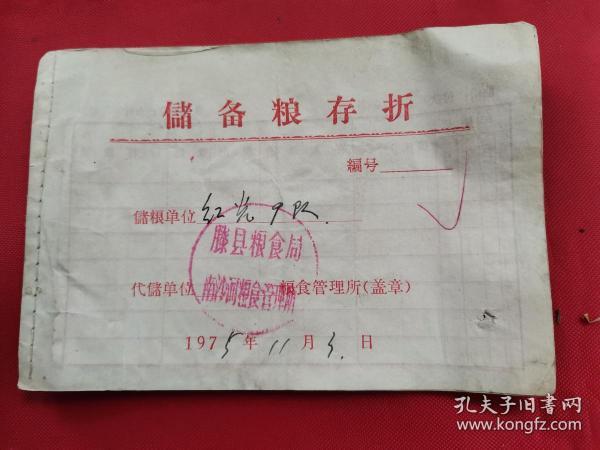 儲备粮存折
編号
儲粮单位 红光9队.
滕县粮食局
南沙河粮食管理所
代儲单位 粮食管理所(盖章)
1975年11月3日
孔夫子旧书网
www.kongfz.com